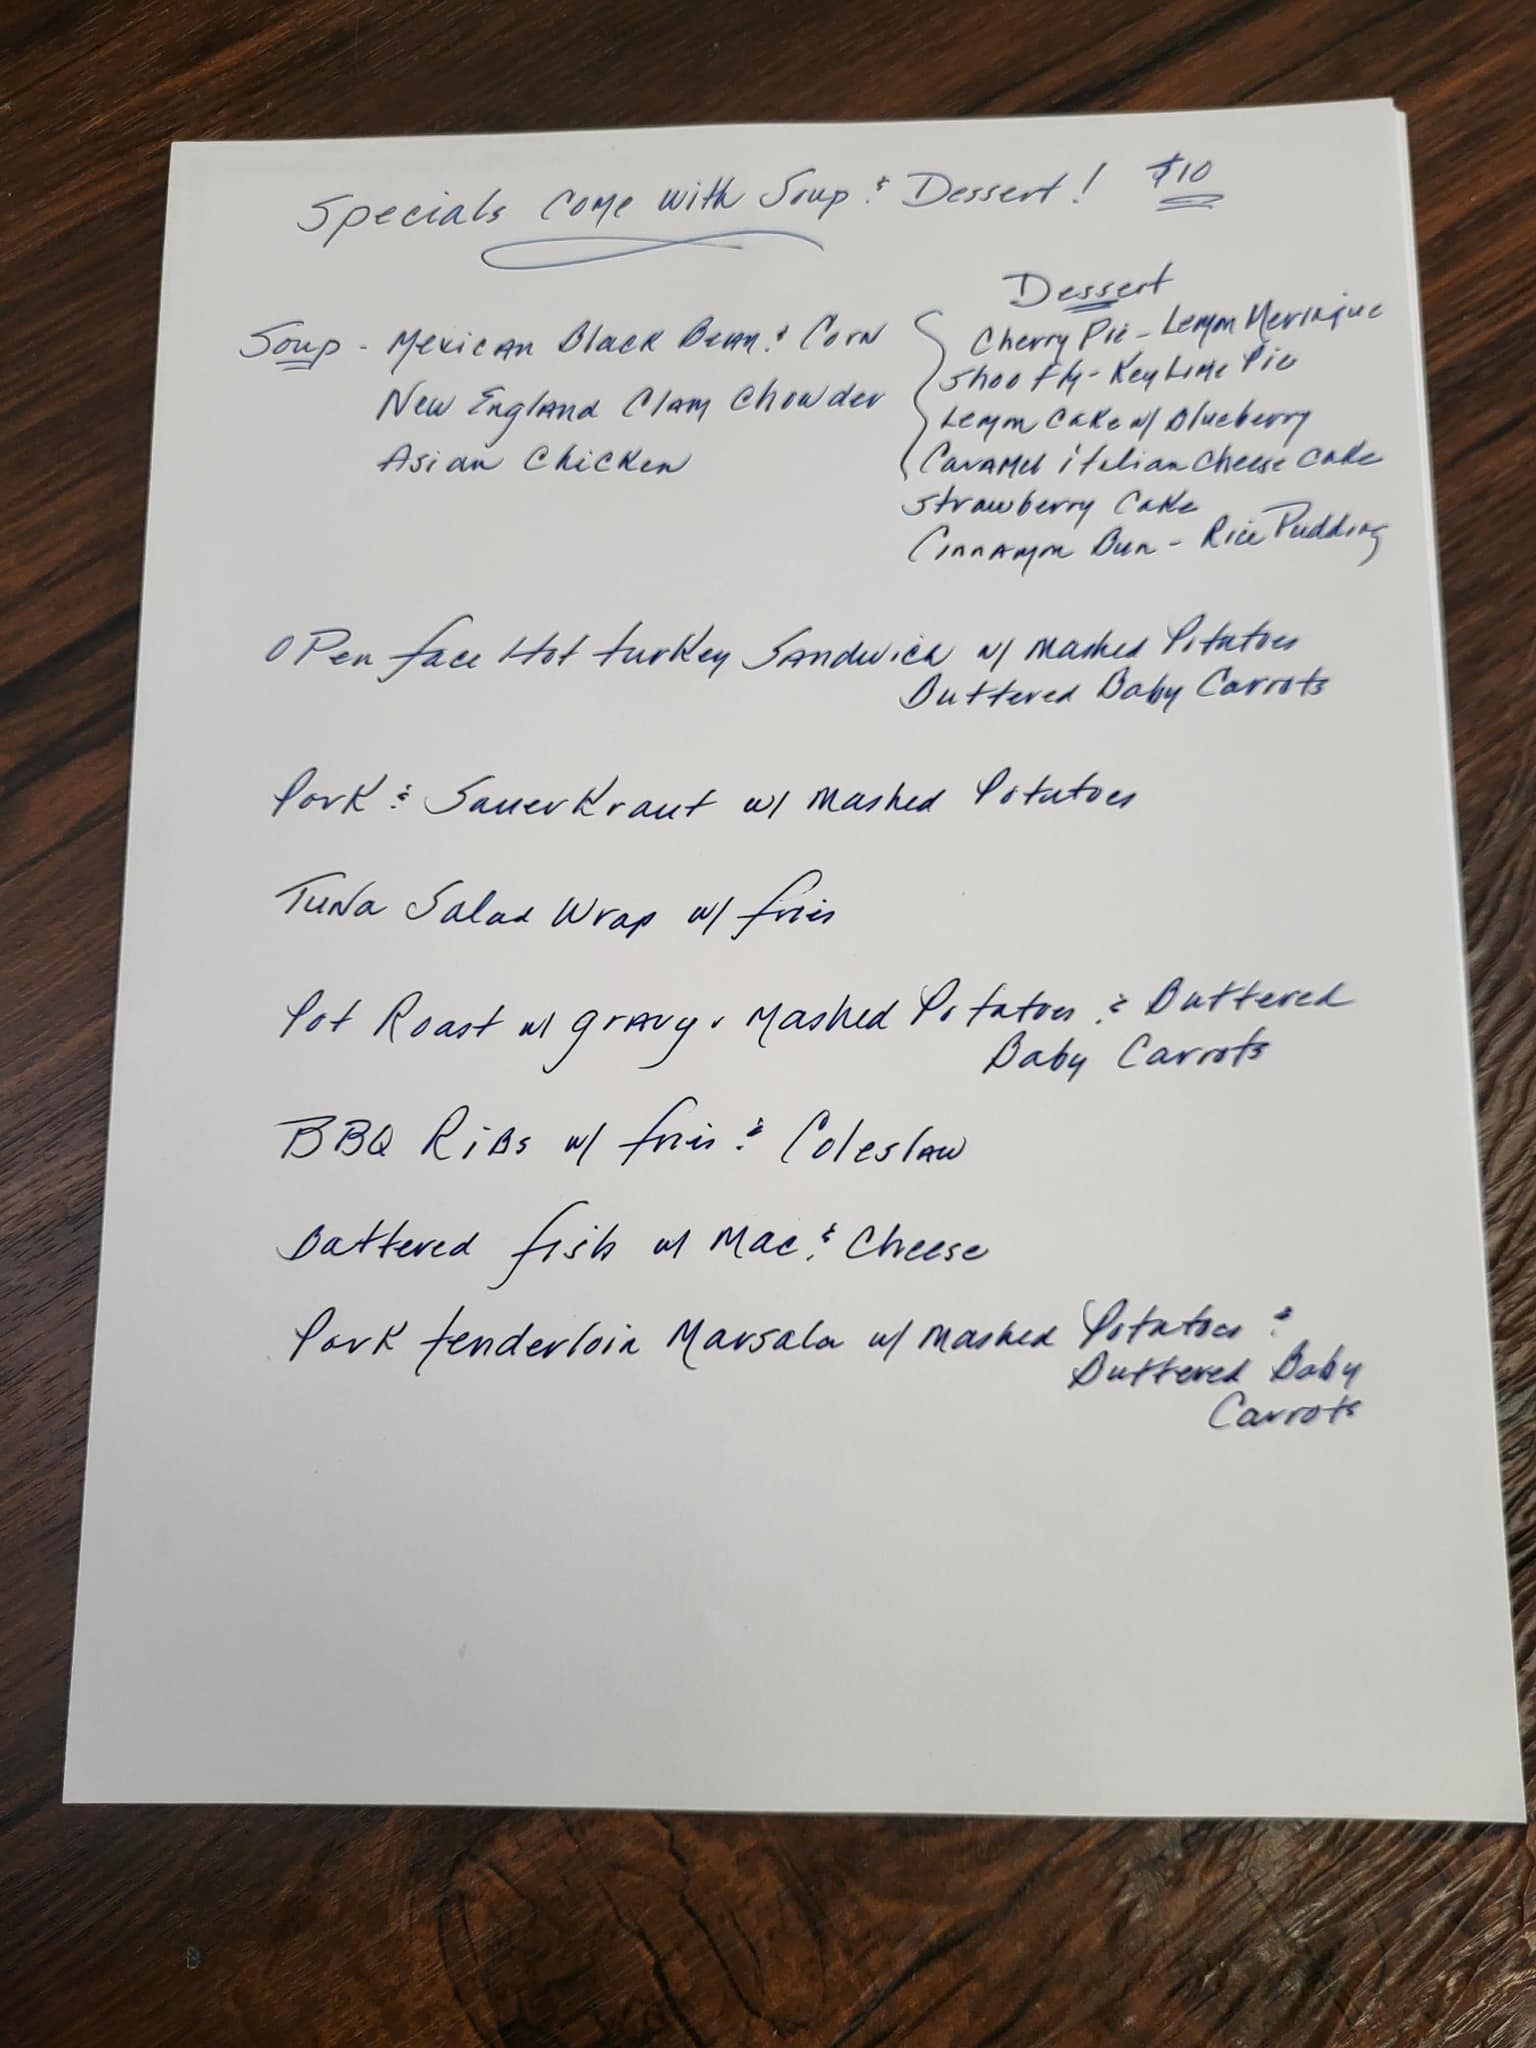 Specials Come with Soup & Dessert! $10
Soup - Mexican Black Bean & Corn
New England Clam Chowder
Asian Chicken
Dessert
Cherry Pie - Lemon Meringue
Shoo Fly - Key Lime Pie
Lemon Cake w/ Blueberry
Caramel italian Cheese Cake
Strawberry Cake
Cinnamon Bun - Rice Pudding
Open face Hot turkey Sandwich w/ Mashed Potatoes
Buttered Baby Carrots
Pork & Sauerkraut w/ Mashed Potatoes
Tuna Salad Wrap w/ fries
Pot Roast w/ gravy, Mashed Potatoes & Buttered
Baby Carrots
BBQ Ribs w/ fries & Coleslaw
Battered fish w/ Mac & Cheese
Pork tenderloin Marsala w/ Mashed Potatoes &
Buttered Baby
Carrots